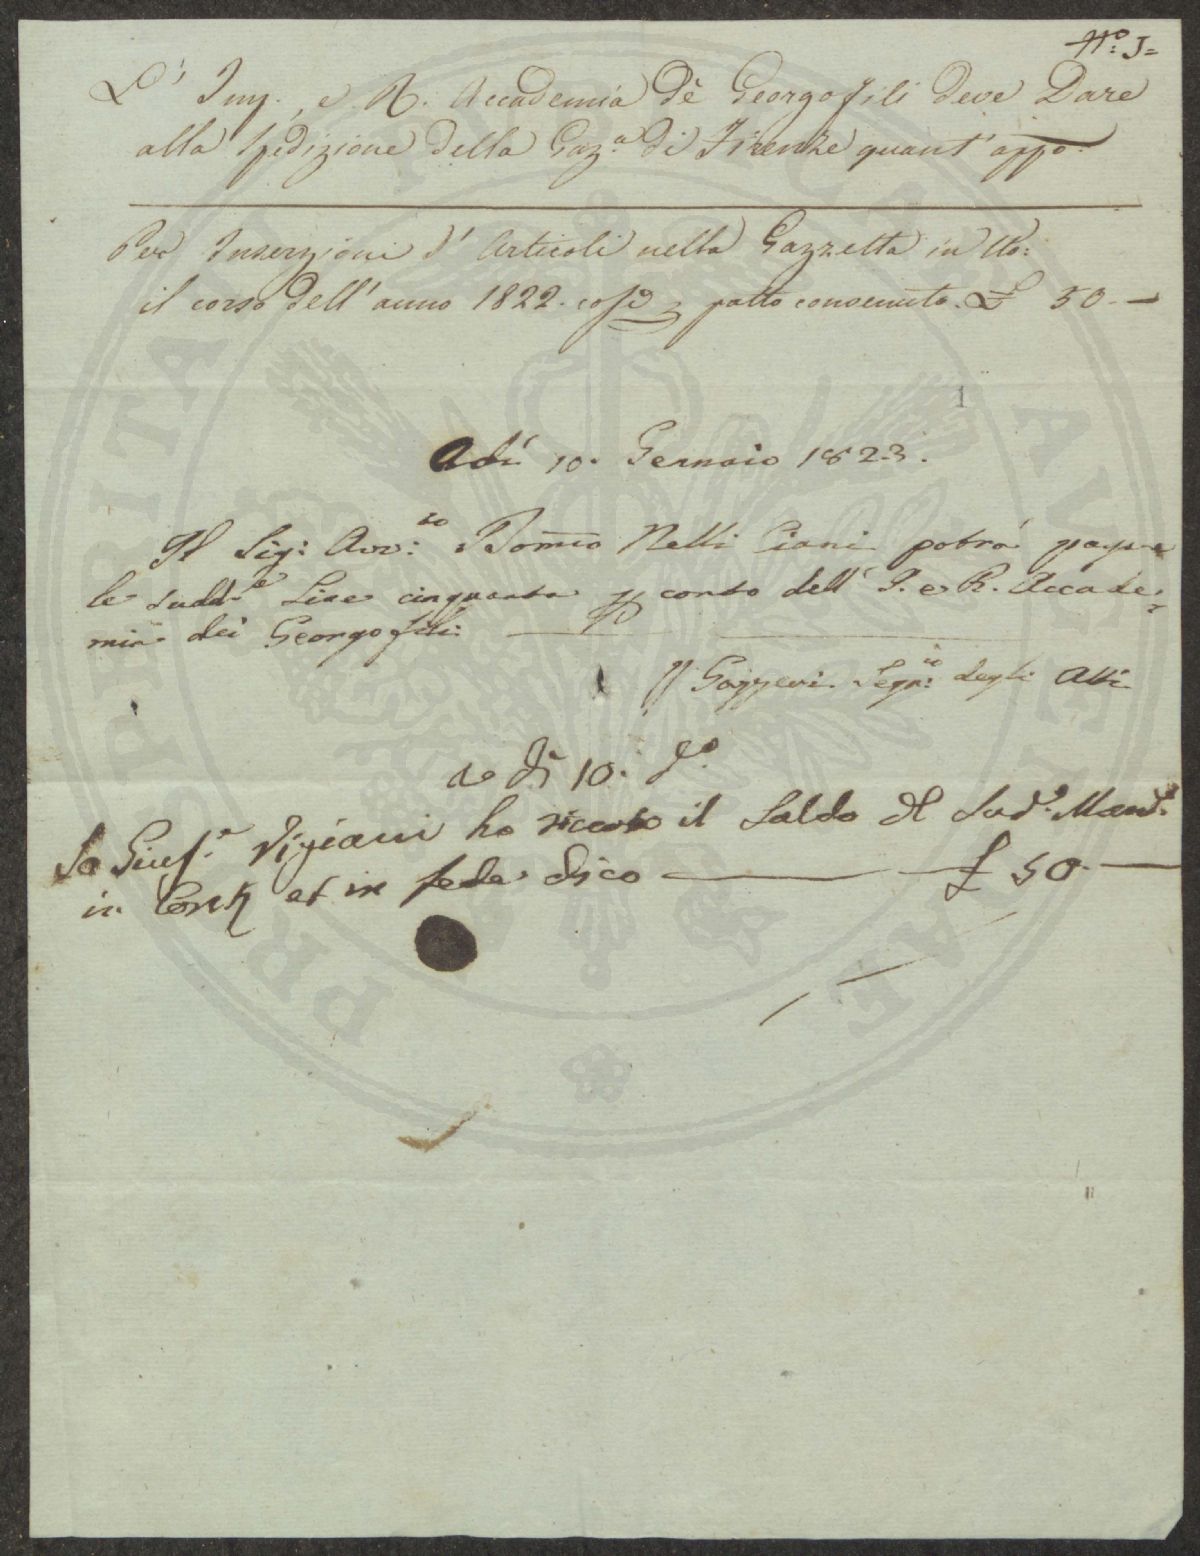 N.º J=
L' Imp. e R. Accademia dè Georgofili deve Dare
alla Spedizione della Gaz.ª di Firenze quant' appº.
Per Inserzioni d' Articoli nella Gazzetta in tto:
il corso dell' anno 1822. così patto convenuto. £ 50.—
1
Adì 10. Gennaio 1823.
Il Sig: Avv:to Nelli Ciani potrà pagare
le sudd.e Lire cinquanta p conto dell' I. e R. Accade=
mia dei Georgofili
G Gazzeri Segr:io degli Atti
a dì 10. dº
Io Gius.e Vigiani ho riceuto il Saldo del Sud.º Mand.º
in Conti et in fede dico — £ 50.—
PROSPERITATI PUBLICAE AUGENDAE